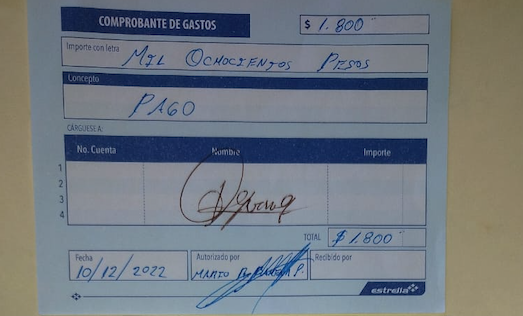 COMPROBANTE DE GASTOS
$ 1.800
Importe con letra
MIL OCHOCIENTOS PESOS
Concepto
PAGO
CÁRGUESE A:
No. Cuenta Nombre Importe
1
2
3
4
TOTAL $1.800
Fecha Autorizado por Recibido por
10/12/2022 MARIO P.
estrella